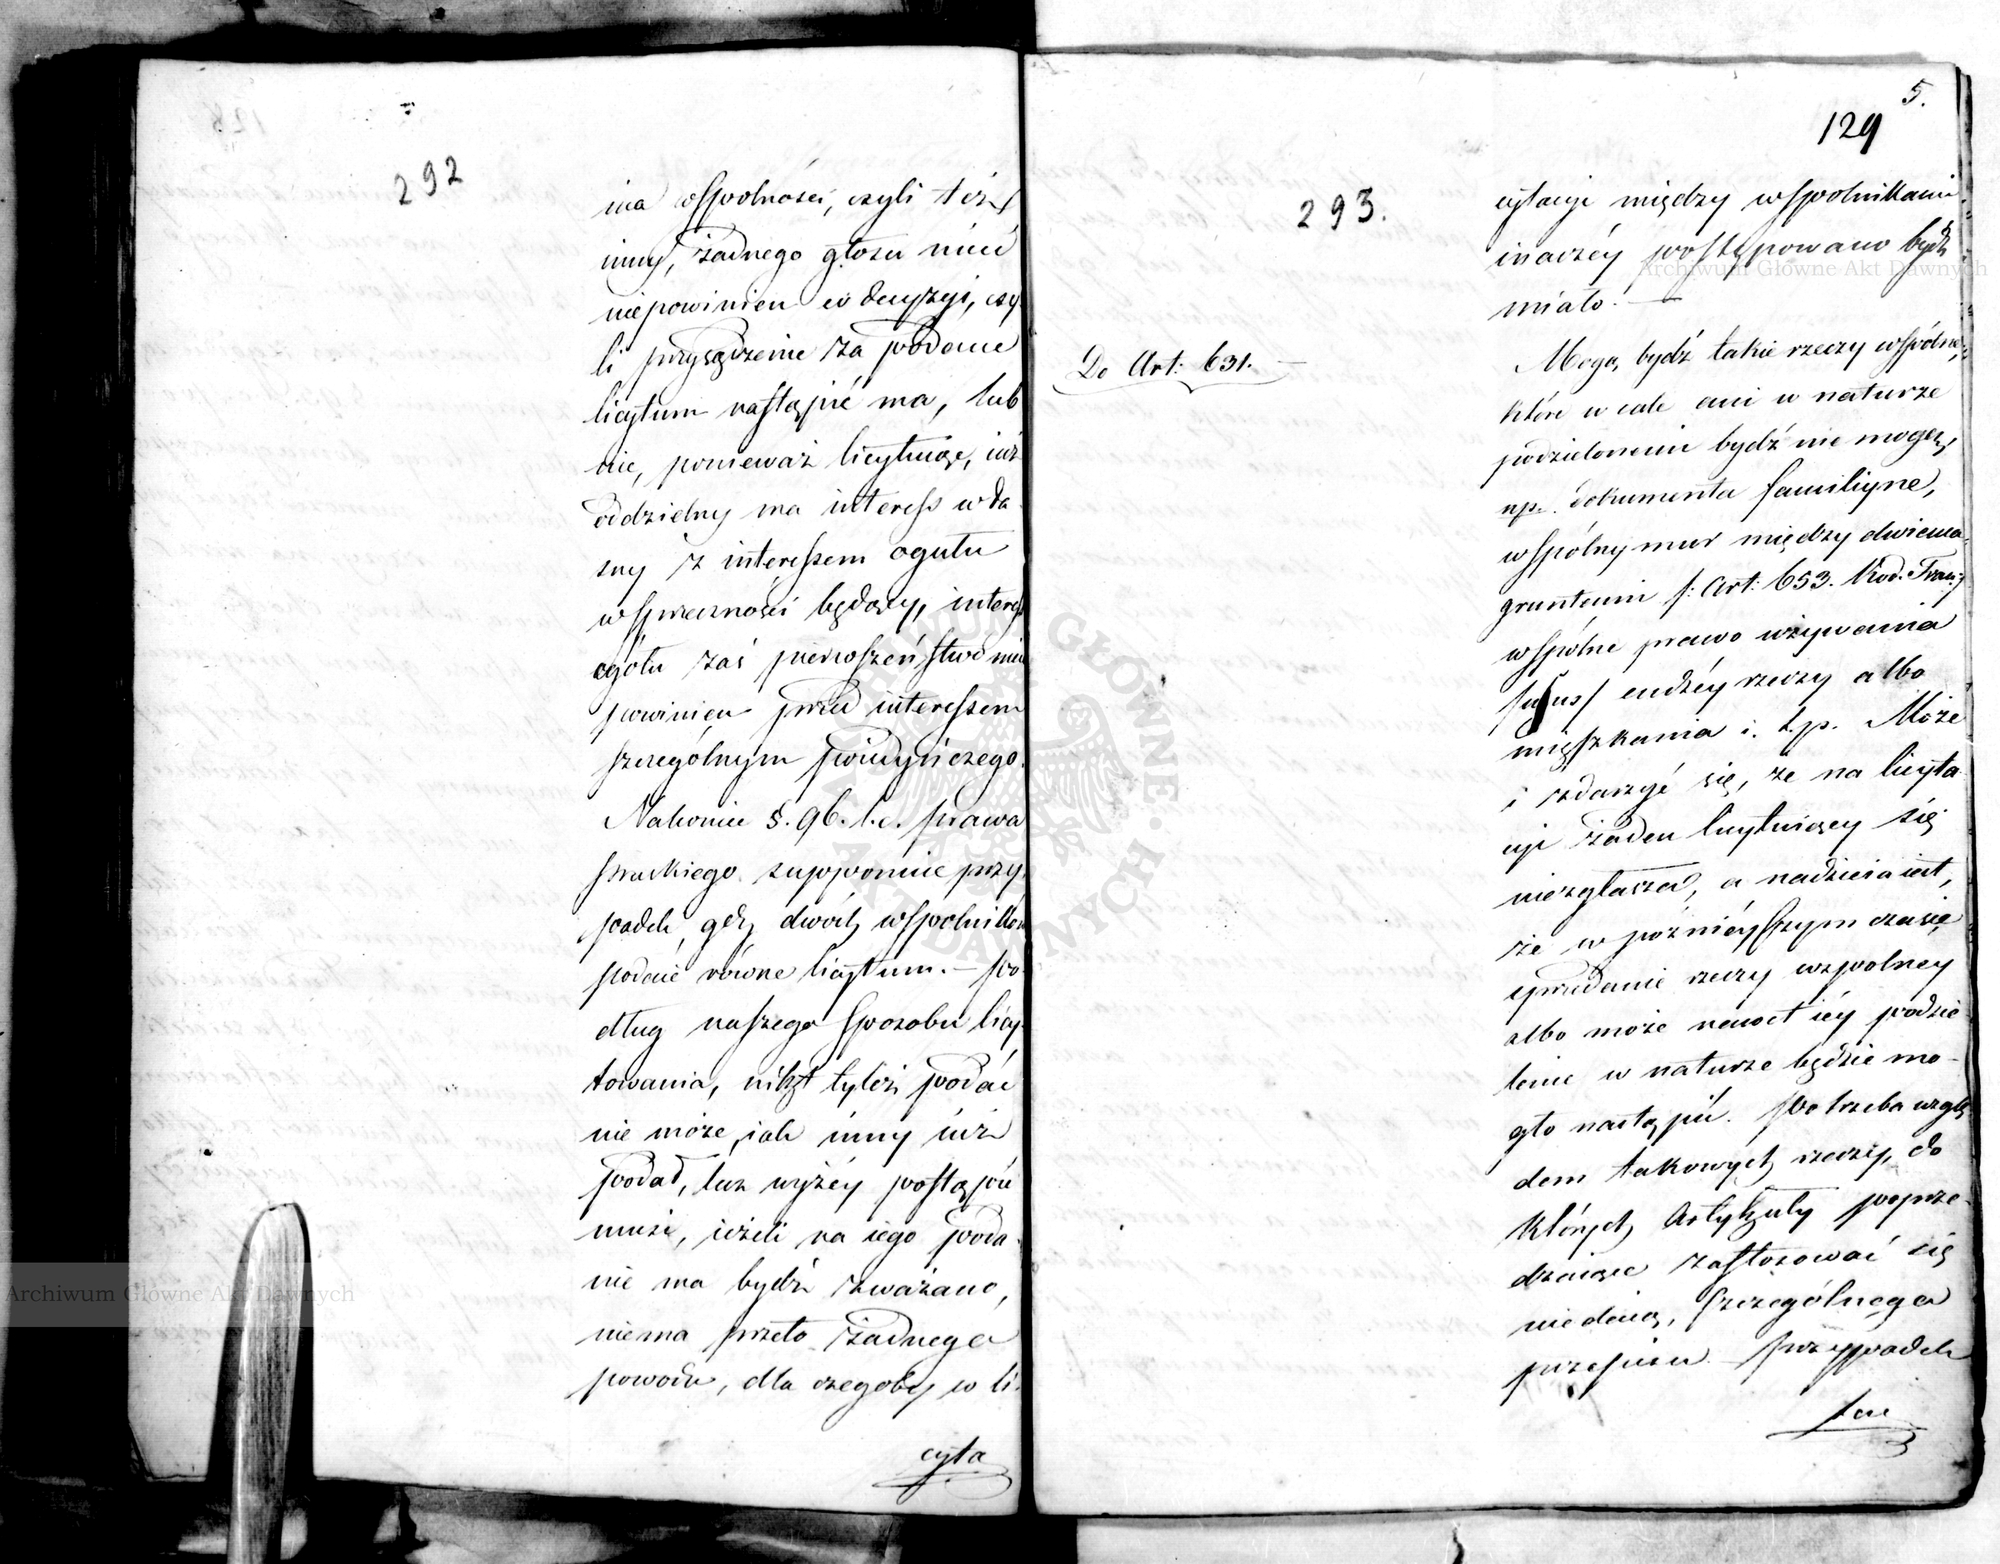 292
ina wspolnósci, czyli też
inny, żadnego głosu mieć
niepowinien w decyzyi, czy
li przysądzenie za podane
licytum nastąpić ma, lub
nie, ponieważ licytuiąc, iuż
oddzielny ma interess wła
sny z interessem ogułu
wsprzeczności będący, interess
ogółu zaś pierwszeństwo mieć
powinien przed interessem
szczególnym poiedyńczego.
Nakoniec §. 96. l. c. prawa
pruskiego suppponuie przy
padek, gdy dwóch wspolników
podaie równe licytum. – po
dług naszego sposobu licy
towania, nikt tyleż podać
nie może, iak inny iuż
podał, lecz wyżéy postąpić
musi, ieżeli na iego poda
nie ma bydź zważano,
niema przeto żadnego
powodu, dla czegoby w li
cyta
5.
129
293.
cytacyi między wspolnikami
inaczéy postępowano bydź
miało. —
Do Art: 631. —
Mogą bydź takie rzeczy wspólne,
które w cale ani w naturze
podzielonemi bydź nie mogą,
np. dokumenta familiyne,
wspólny mur między dwiema
gruntami /: Art: 653. Kod. Franc:/
wspólne prawo używania
/usus/ cudzéy rzeczy albo
mięszkania i. t. p. Może
i zdarzyć się, że na licyta
cyi żaden licytuiący się
niezgłasza, a nadzieia iest,
że w poźniéyszym czasie
sprzedanie rzeczy wspolney
albo może nawet iéy podzie
lenie w naturze będzie mo-
gło nastąpić. Potrzeba wzglę
dem takowych rzeczy, do
których Artykuły poprze
dzaiące zastosować się
niedaią, szczególnego
przepisu przypadek
ten
Archiwum Główne Akt Dawnych
Archiwum Główne Akt Dawnych
ARCHIWUM GŁÓWNE AKT DAWNYCH